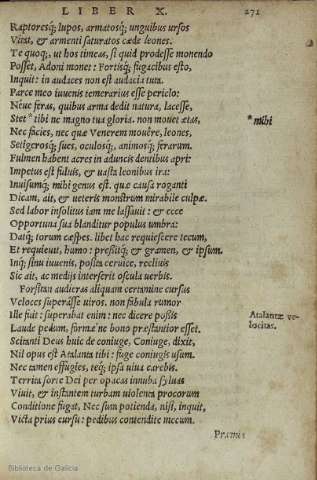 LIBER X. 271
Raptoresq; lupos, armatosq; unguibus ursos
Vitat, & armenti saturatos cæde leones.
Te quoq;, ut hos timeas, si quid prodesse monendo
Posset, Adoni monet: Fortisq; fugacibus esto,
Inquit: in audaces non est audacia tuta.
Parce meo iuuenis temerarius esse periclo:
Néue feras, quibus arma dedit natura, lacesse,
Stet * tibi ne magno tua gloria. non mouet ætas,
*mihi
Nec facies, nec quæ Venerem mouêre, leones,
Setigerosq; sues, oculosq;, animosq; ferarum.
Fulmen habent acres in aduncis dentibus apri:
Impetus est fuluis, & uasta leonibus ira:
Inuisumq; mihi genus est. quæ causa roganti
Dicam, ait, & ueteris monstrum mirabile culpæ.
Sed labor insolitus iam me lassauit: & ecce
Opportuna sua blanditur populus umbra:
Datq; torum cæspes. libet hac requiescere tecum,
Et requieuit, humo: pressitq; & gramen, & ipsum.
Inq; sinu iuuenis, posita ceruice, reclinis
Sic ait, ac medijs interserit oscula uerbis.
Forsitan audieras aliquam certamine cursus
Veloces superâsse uiros. non fabula rumor
Ille fuit: superabat enim: nec dicere posses
Atalantæ ve-
locitas.
Laude pedum, formæ ne bono præstantior esset.
Scitanti Deus huic de coniuge, Coniuge, dixit,
Nil opus est Atalanta tibi: fuge coniugis usum.
Nec tamen effugies, teq; ipsa uiua carebis.
Territa sorte Dei per opacas innuba syluas
Viuit, & instantem turbam uiolenta procorum
Conditione fugat, Nec sum potiunda, nisi, inquit,
Victa prius cursu: pedibus contendite mecum.
Præmia
Biblioteca de Galicia